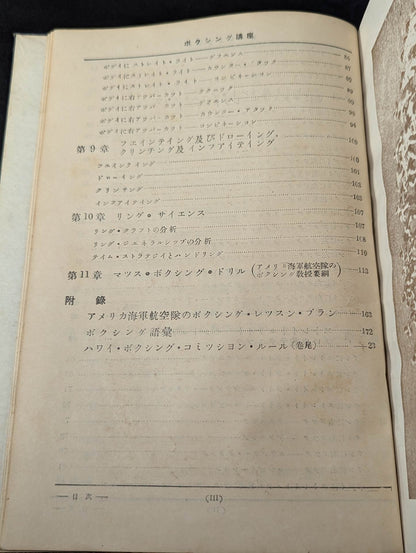 ボクシング講座
ボデイにストレイト・ライト——デフエンス 86
ボデイにストレイト・ライト——カウンター・アタツク 87
ボデイにストレイト・ライト——コンビネーシヨン 89
ボデイに右アツパーカツト——テクニツク 89
ボデイに右アツパーカツト——デフエンス 90
ボデイに右アツパーカツト——カウンター・アタツク
ボデイに右アツパーカツト——コンビネーシヨン
第9章 フエインテイング及びドローイング・クリンチング及インフアイテイング 100
フエインテイング
ドローイング
クリンチング 103
インフアイテイング 105
第10章 リング。サイエンス 107
リング・クラフトの分析 107
リング・ジエネラルシツプの分析 108
タイム・ストラテジイとハンドリング 110
第11章 マツス。ボクシング・ドリル(アメリカ海軍航空隊のボクシング教授要綱) 113
附錄
アメリカ海軍航空隊のボクシング・レツスン・プラン 163
ボクシング語彙 172
ハワイ・ボクシング・コミツシヨン・ルール(卷尾) 23
— 目次 —
(III)